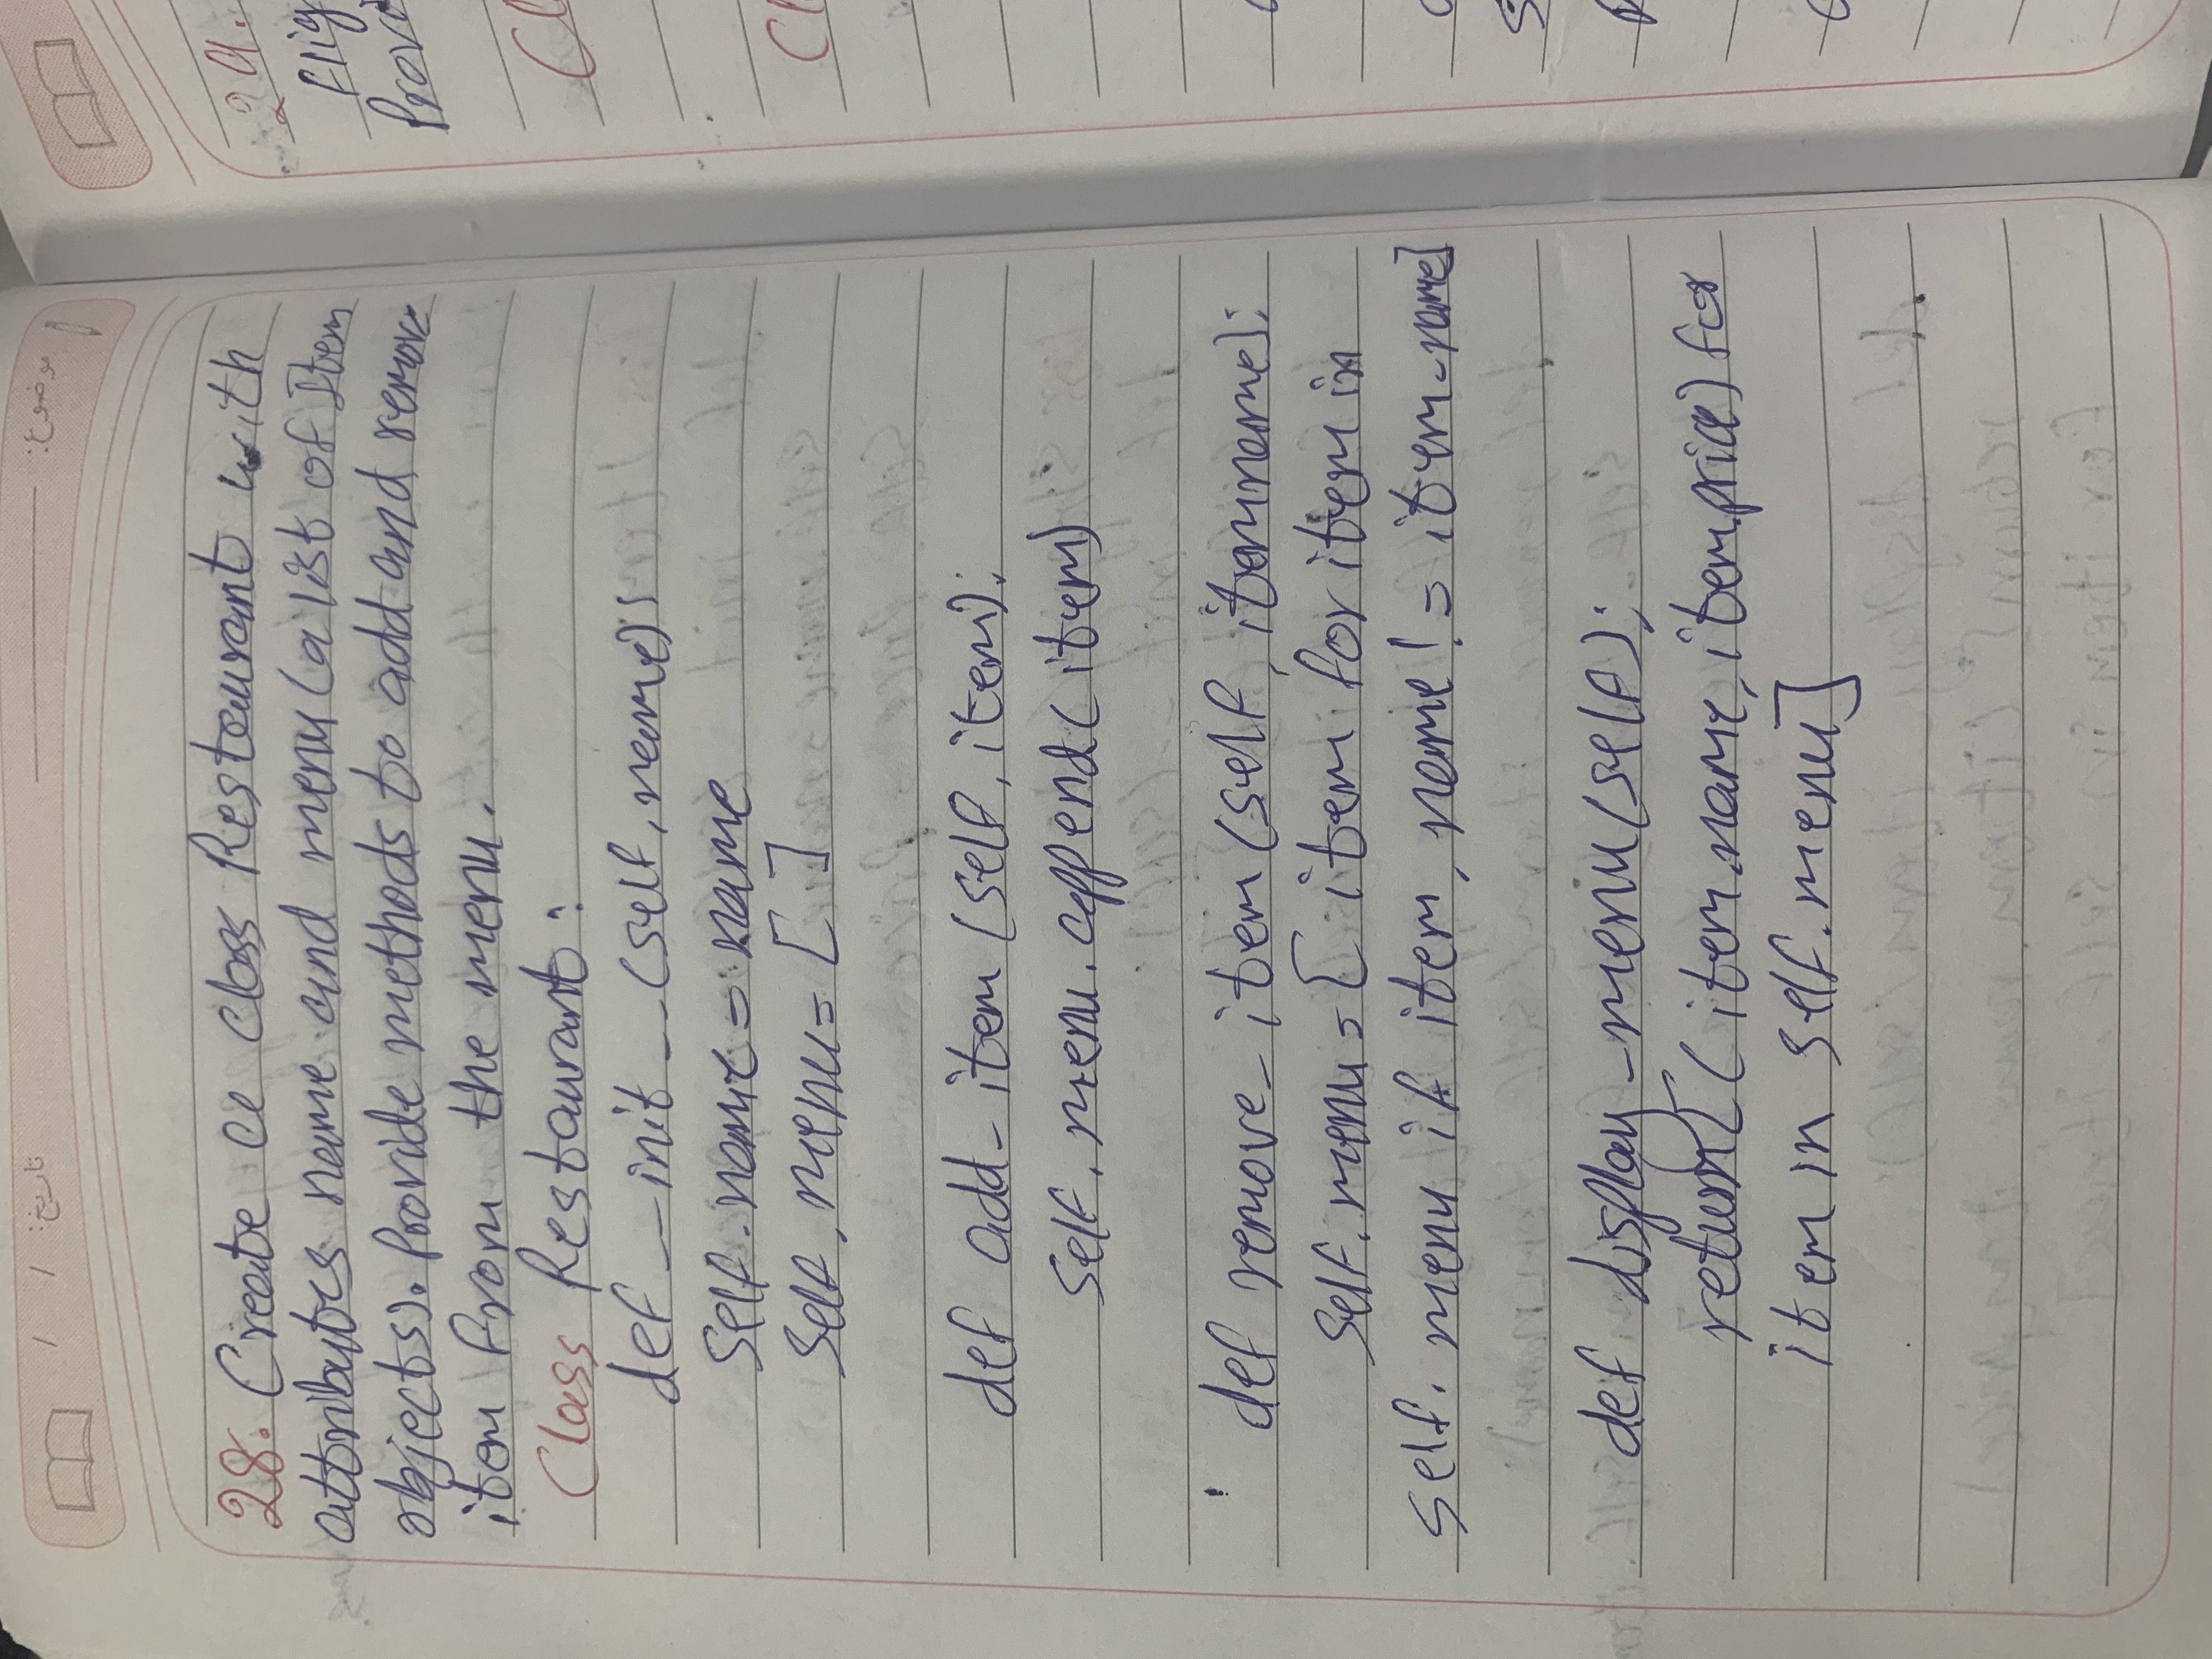 موضوع: تاريخ: / /
28. Create a class Restaurant with
attributes name and menu (a list of Item
objects). Provide methods to add and remove
item from the menu.
Class Restaurant:
def __init__(self, name):
self.name = name
self.menu = [ ]
def add_item (self, item):
self.menu.append(item)
def remove_item (self, itemname):
self.menu = [ item for item in
self.menu if item.name != item_name]
def display_menu(self):
return [(item.name, item.price) for
item in self.menu]
29.
Flig
Prov
Cl
Cl